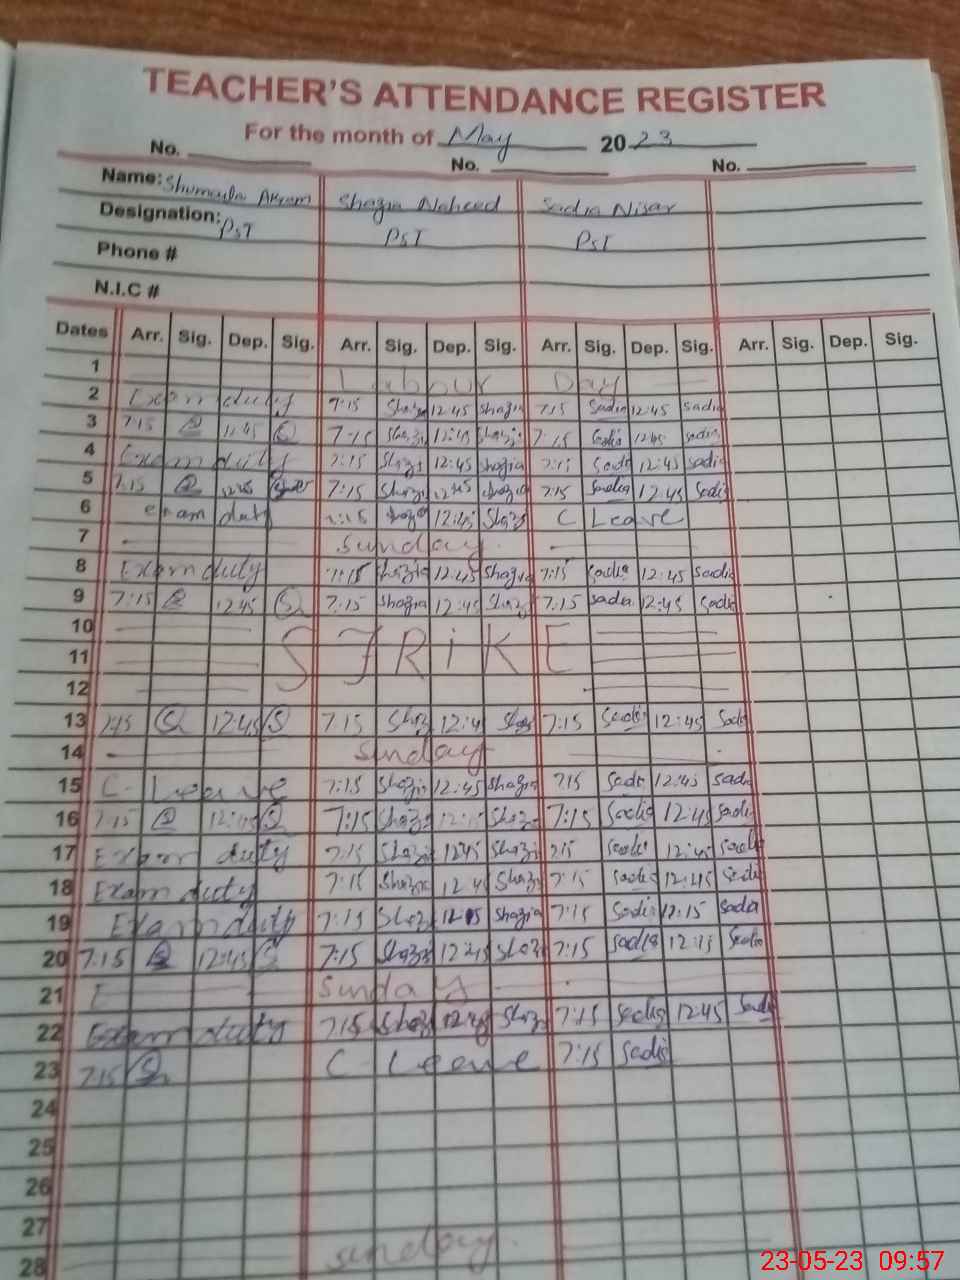 TEACHER'S ATTENDANCE REGISTER
For the month of May 2023
No. No. No.
Name: Shumaila Akram Shazia Naheed Sadia Nisar
Designation: PST PST PST
Phone #
N.I.C #
Dates Arr. Sig. Dep. Sig. Arr. Sig. Dep. Sig. Arr. Sig. Dep. Sig. Arr. Sig. Dep. Sig.
1 Labour Day
2 Exam duty 7:15 Shazi 12:45 Shazia 7:15 Sadia 12:45 Sadia
3 7:15 12:45 7:15 Shazi 12:45 Shazi 7:15 Sadia 12:45 Sadia
4 Exam duty 7:15 Shazi 12:45 Shazia 7:15 Sadi 12:45 Sadi
5 7:15 12:45 7:15 Shazi 12:45 Shazia 7:15 Sadia 12:45 Sadi
6 exam duty 7:15 Shazia 12:45 Shazi C Leave
7 Sunday
8 Exam duty 7:15 Shazia 12:45 Shazia 7:15 Sadia 12:45 Sadia
9 7:15 12:45 7:15 Shazia 12:45 Shazi 7:15 Sadia 12:45 Sadi
10
11 STRiKE
12
13 7:15 12:45 7:15 Shaz 12:4 Shaz 7:15 Sadi 12:45 Sadi
14 Sunday
15 C. Leave 7:15 Shazi 12:45 Shazia 7:15 Sadi 12:45 Sadi
16 7:15 12:45 7:15 Shazi 12:15 Shazi 7:15 Sadia 12:45 Sadi
17 Exam duty 7:15 Shazi 1245 Shazi 715 Sadi 12:45 Sadi
18 Exam duty 7:15 Shazi 12:4 Shazi 7:15 Sadi 12:45 Sadi
19 Exam duty 7:15 Shaz 12:15 Shazia 7:15 Sadi 12:15 Sadia
20 7:15 12:45 7:15 Shazi 12:45 Shazi 7:15 Sadia 12:15 Sadia
21 Sunday
22 Exam duty 715 Shaz 12:45 Shaz 7:15 Sadia 1245 Sadi
23 715 C Leave 7:15 Sadi
24
25
26
27
28 Sunday
23-05-23 09:57